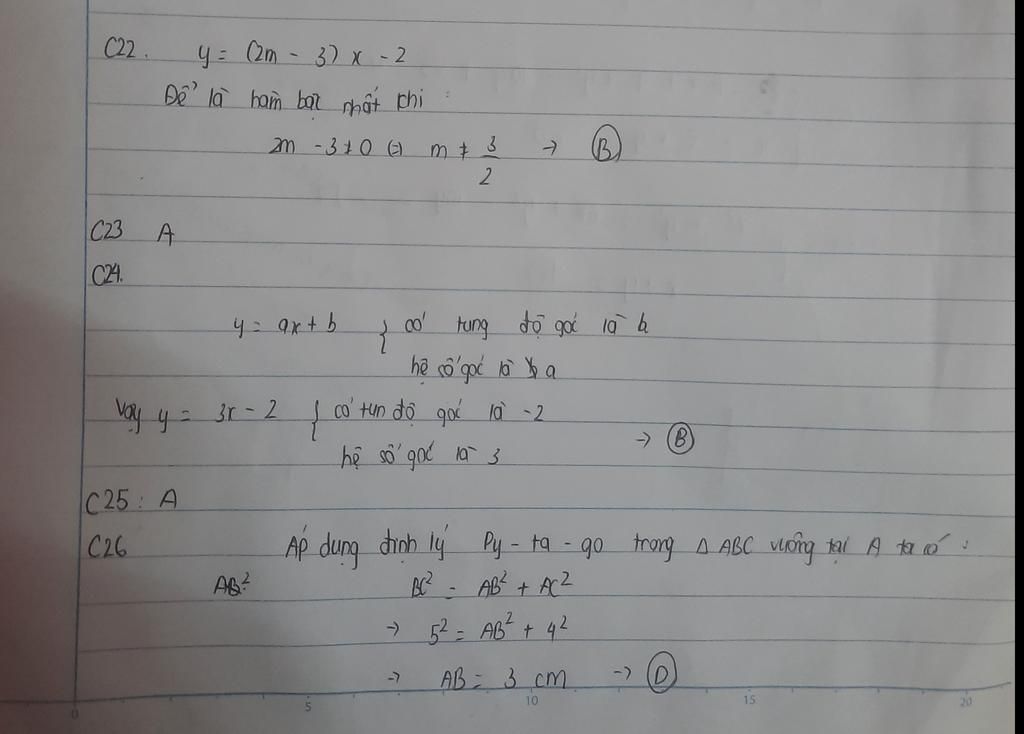 C22. y = (2m - 3) x - 2
Để là hàm bậc nhất khi :
2m - 3 ≠ 0 (=) m ≠ 3/2 → B
C23 A
C24.
y = ax + b { có tung độ gốc là b
hệ số góc là a
Vậy y = 3x - 2 { có tun độ gốc là -2
hệ số góc là 3 → B
C25 : A
C26 Áp dụng định lý Py - ta - go trong Δ ABC vuông tại A ta có :
AB²: BC² = AB² + AC²
→ 5² = AB² + 4²
→ AB = 3 cm → D
0 5 10 15 20